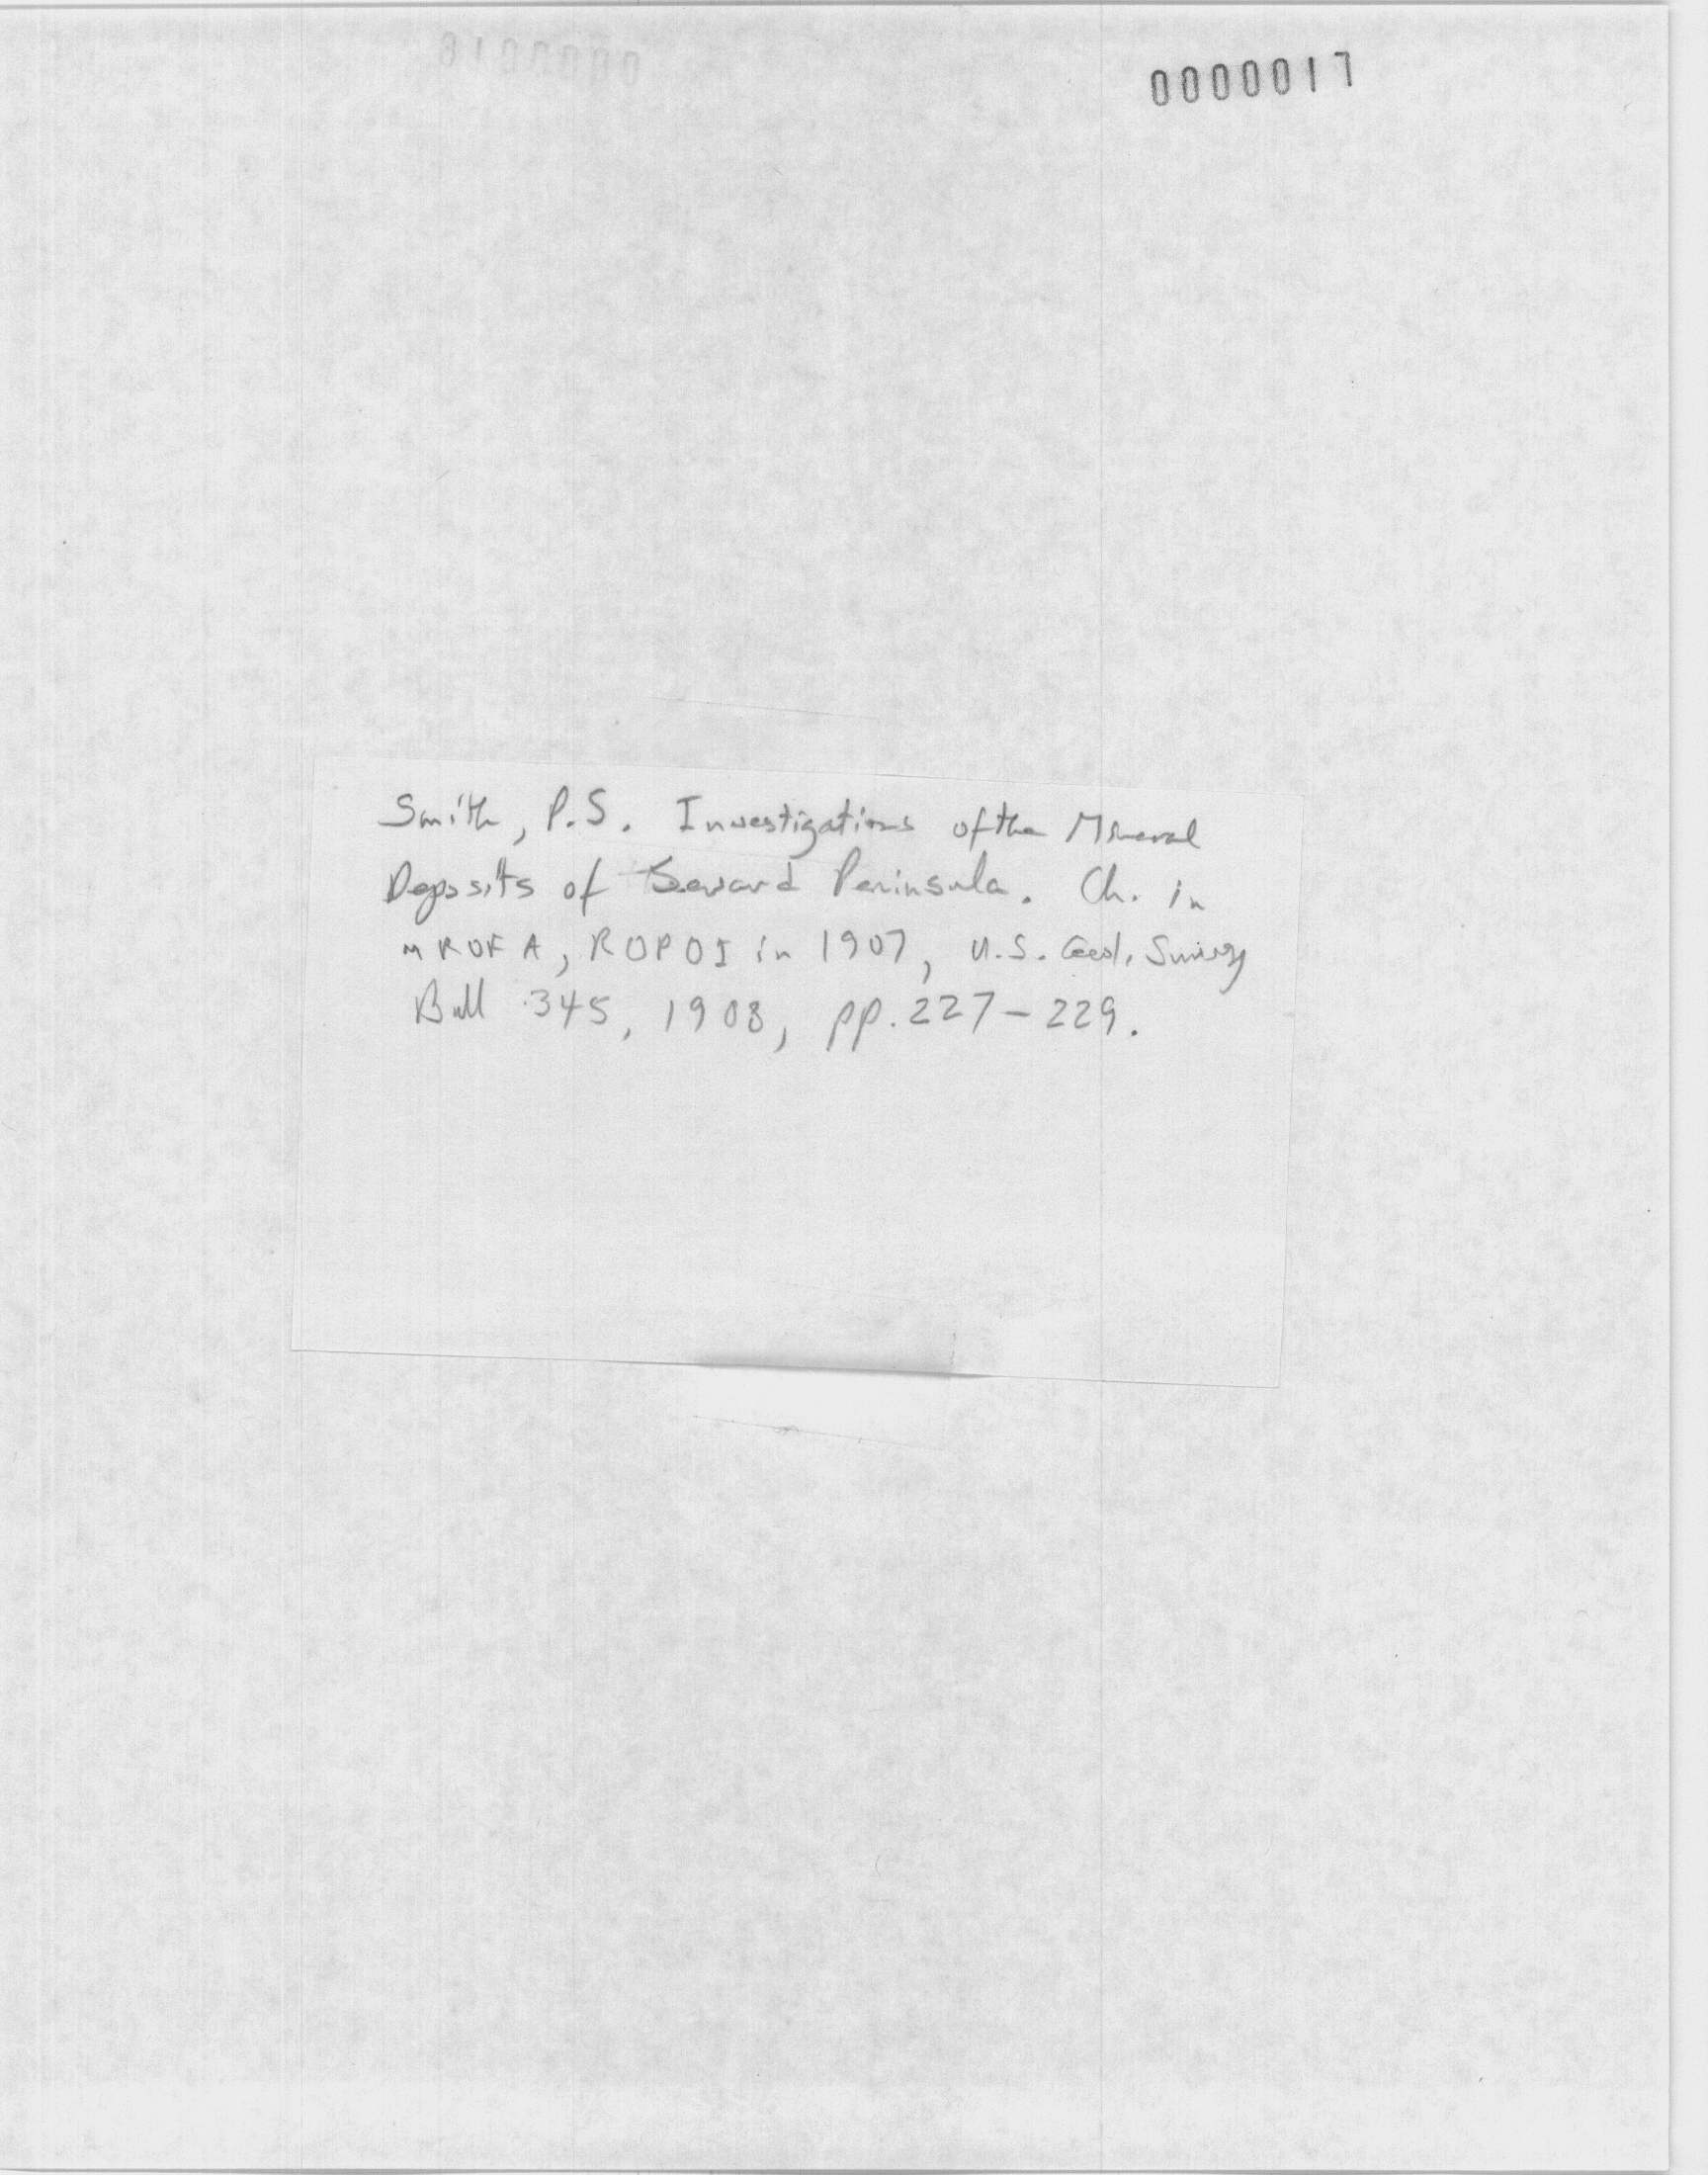 0000017
Smith, P.S. Investigations of the Mineral
Deposits of Seward Peninsula. Ch. in
MROFA, ROPOI in 1907, U.S. Geol. Survey
Bull 345, 1908, pp. 227-229.